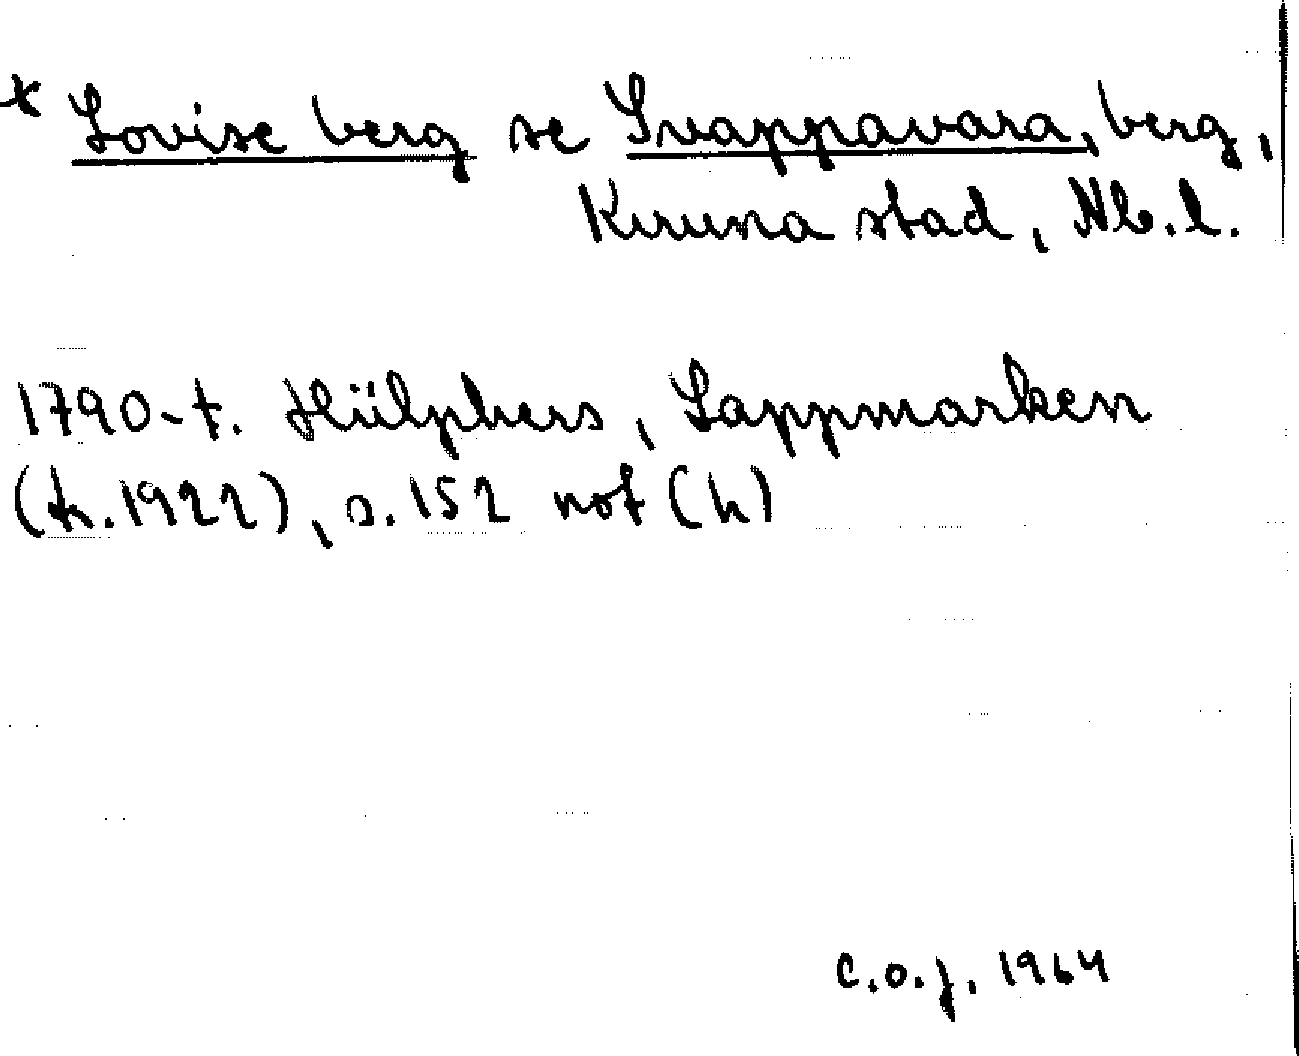 * Lovise berg se Svappavara, berg,
Kiruna stad, Nb.l.
1790-t. Hülphers, Lappmarken
(tr. 1922), s. 152 not (h)
C.O.J. 1964